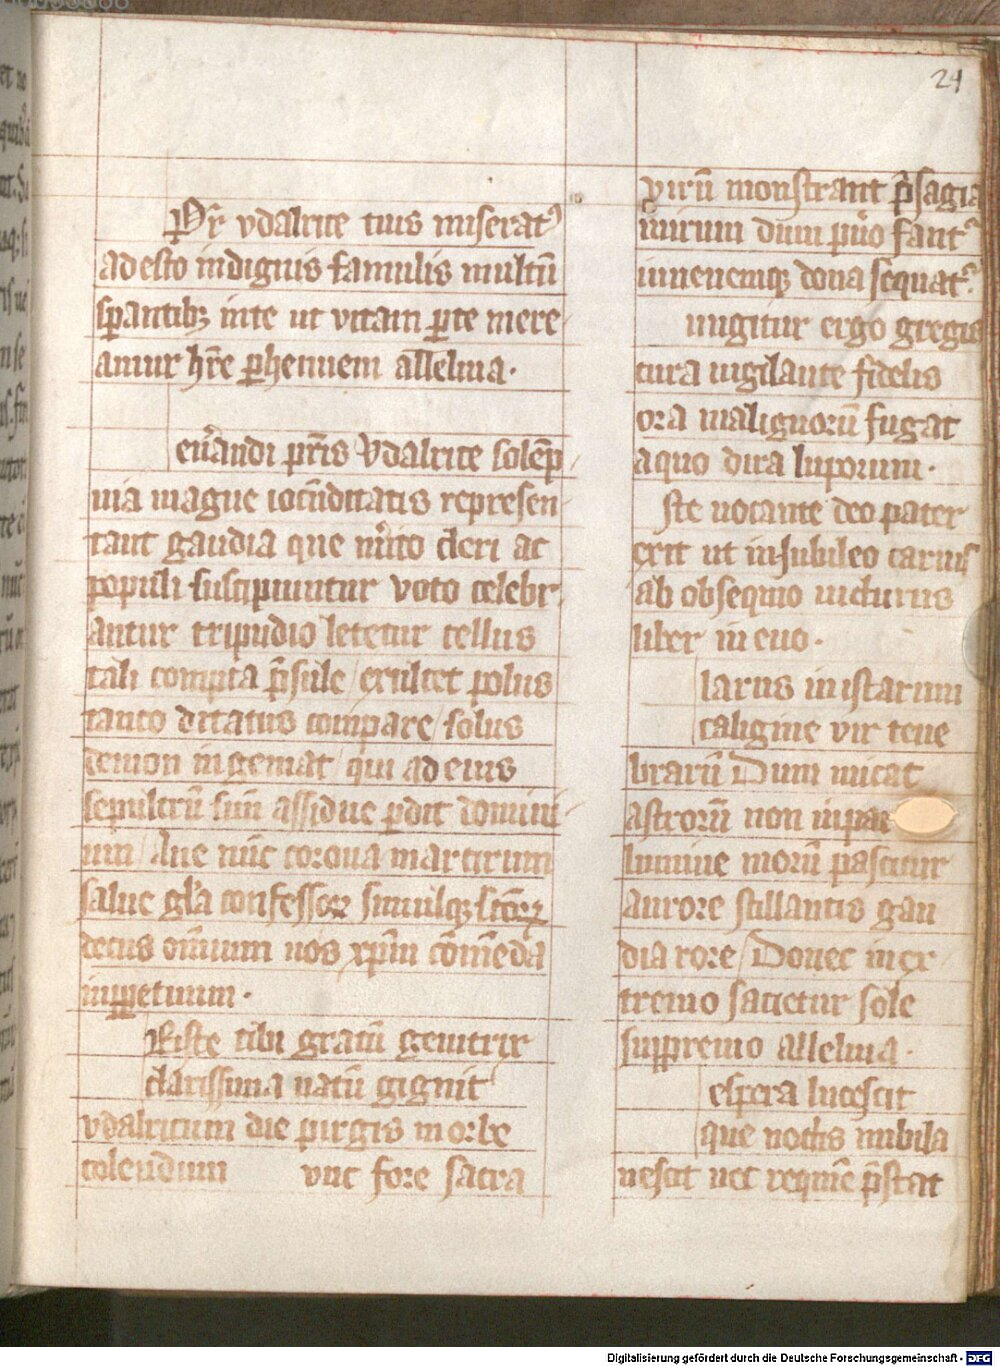 24
Pr̄ vdalrice tuis miserat⁹
adesto indignis famulis multū
sꝑantibꝫ inte ut vitam ꝑte mere
amur hr̄e ꝑhennem all̄eluia.
en̄andi pr̄is Vdalrice solēp
nia magne iocūditatis represen
tant gaudia que m̄ito cleri ac
populi suscipiuntur voto celebr
antur tripudio letetur tellus
tali compta p̄sule / exultet polus
tanto ditatus compare / solus
demon ingemat / qui ad eius
sepulcrū suū assidue ꝑdit domini
um / Aue nūc corona martirum
salue gl̄a confessoꝝ similqꝫ
decus om̄ium nos xp̄m cōmēda
inꝑpetuum.
Riste tibi gratū genitrix
clarissima natū gignit
vdalricum die pirgis morbe
colendum vnc fore sacra
virū monstrant p̄sagia
mirum dum pu̓o fant
iuuenemqꝫ dona sequat
ungitur ergo gregis
cura uigilante fidelis
ora malignorū fugat
aquo dira luporum.
ste uocante deo pater
exit ut in Jubileo carnis
ab obsequio uicturus
liber in euo.
larus in istarum
caligine vir tene
brarū Dum micat
astrorū non inpar
lumine morū pascitur
aurore stillantis gau
dia rore / Donec in ex
tremo sacietur sole
supp̄remo alleluia.
espera lucescit
que noctis nubila
nescit nec requiē p̄stat
Digitalisierung gefördert durch die Deutsche Forschungsgemeinschaft - DFG